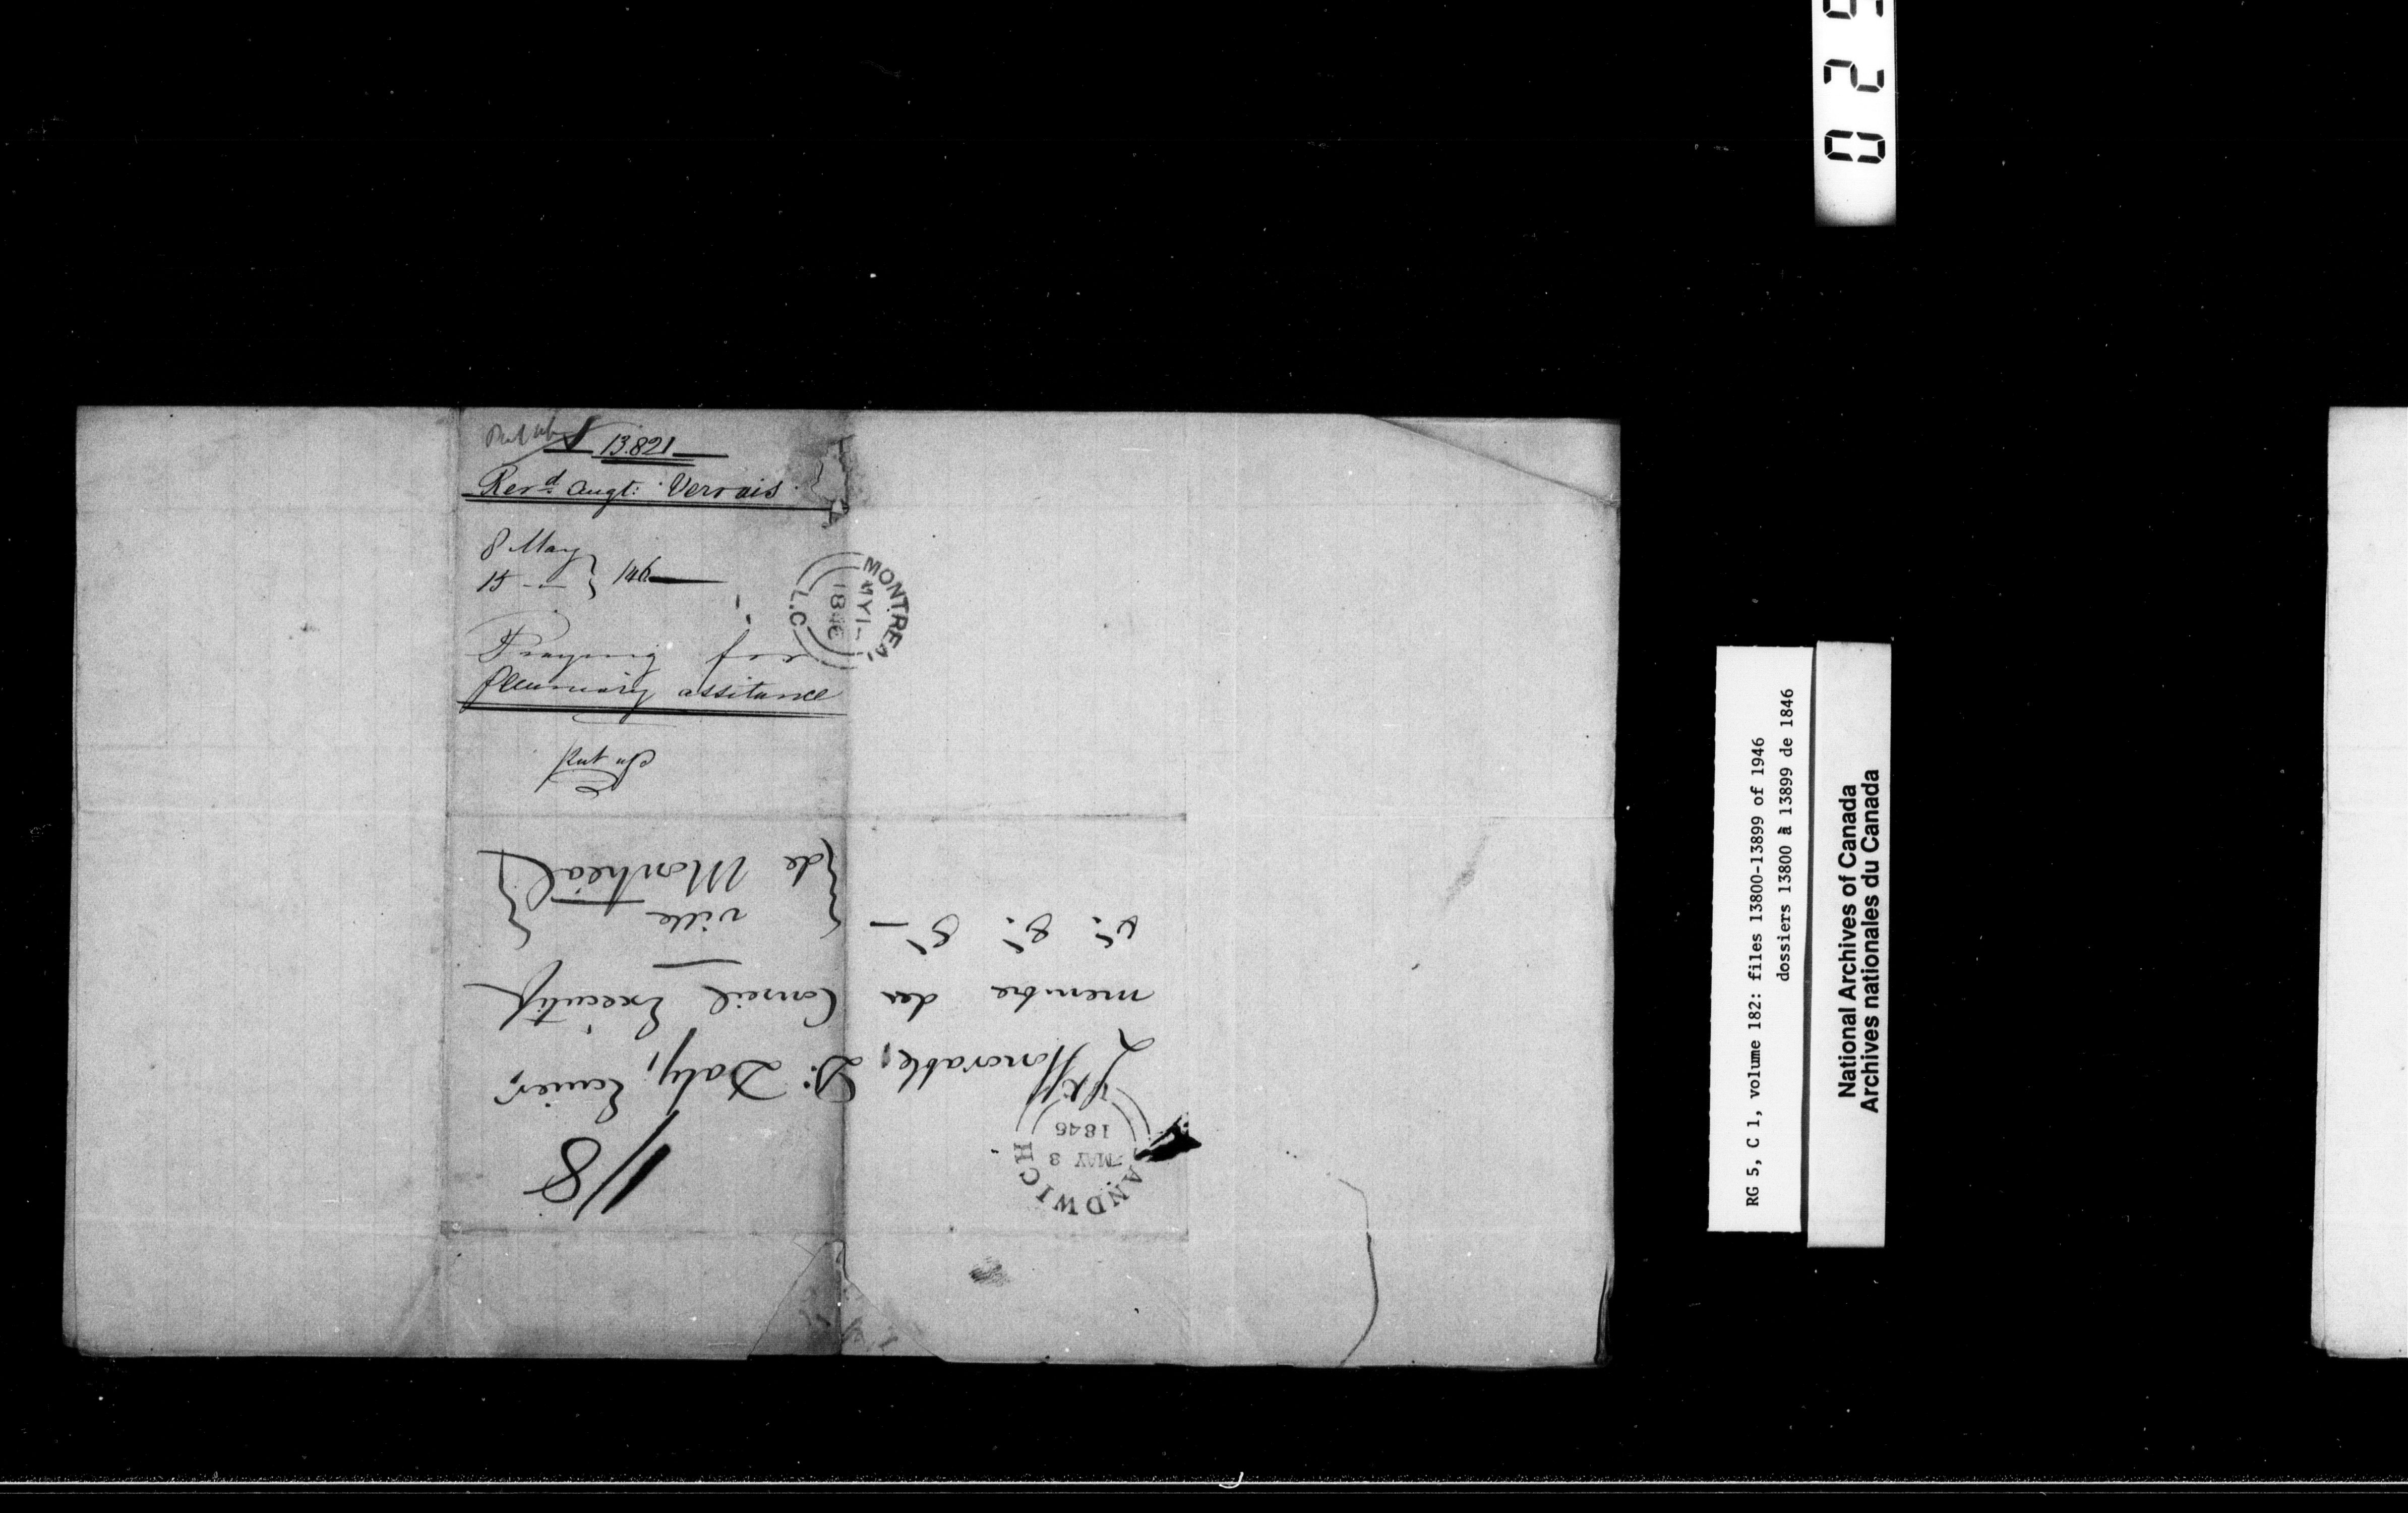 Put up
13.821
Revd. Augt: Vervais
8 May
15 - — } 146
Praying for
Pecuniary assitance
Put up
MONTREAL
MY 1-
1846
L.C
1/8
SANDWICH
MAY 8
1846
L'Honorable, D: Daly, Ecuier,
membre du Conseil Executif
&c: &c: &c —
ville
de Montréal
029
RG 5, C 1, volume 182: files 13800-13899 of 1946
dossiers 13800 à 13899 de 1846
National Archives of Canada
Archives nationales du Canada